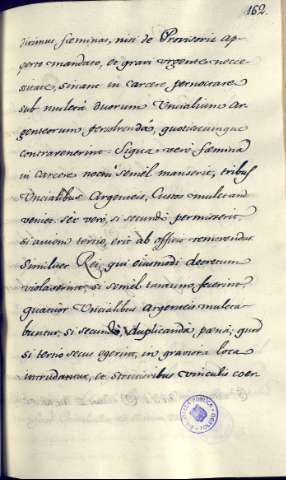 162.
dicimus fæminas, nisi de Provisoris ap-
perto mandato, et gravi urgente nece-
sitate, senare in carcere pernoctare
sub mulcta duorum Uncialium Ar-
genteorum persolvenda, quotiescumque
contravenerint. Si qua vero fæmina
in carcere noctu semel manserit, tribus
Uncialibus Argenteis, Custos mulctand
veniet: sex vero, si secundo permiserit
si autem tertio, erit ab officio removendus
Similiter Rei, qui eiusmodi decretum
violaverint, si semel tantum fecerint
quatuor Uncialibus Argenteis mulcta-
buntur, si secundo, duplicanda pæna; quod
si tertio secus egerint, in graviora loca
intrudantur, et strictioribus vinculis coer-